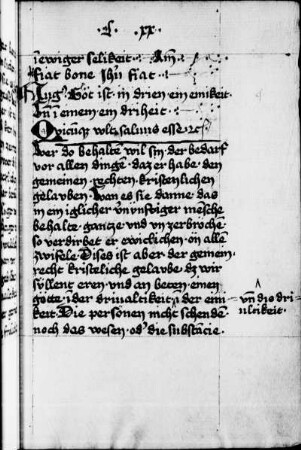 · L · xx ·
iewiger selikeit · Am̄
fiat bone ihū fiat ·
Lug · Got ist in drien ein emikeit
Vn̄ i einem ein driheit ·
Quicūq; vult saluus esse ·
Wer do behaltē wil sin · der bedarf
vor allen dingē · daz er habe den
gemeinen rechten kristenlichen
gelauben · Wan es sie danne das
in ein iglicher vnvnftiger mēsche
behalte gantze vnd vnzerbrochē
so verdirbet er ewiclichen on allen
zwifele · Dises ist aber der gemein
recht kristēliche gelaube dz wir
süllent eren vnd an beten einen
gotte in der driualtikeit der eini
keit · Die personen nicht schende
noch das wesen od' die substācie ·
vn̄ die dri
ualtikeit ·